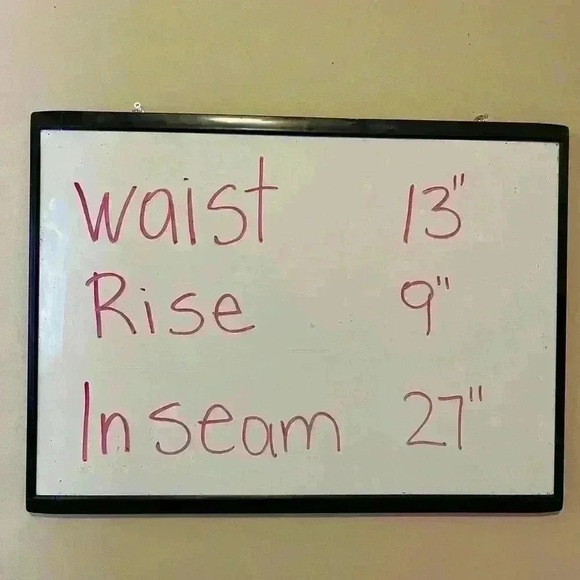 waist 13"
Rise 9"
Inseam 27"